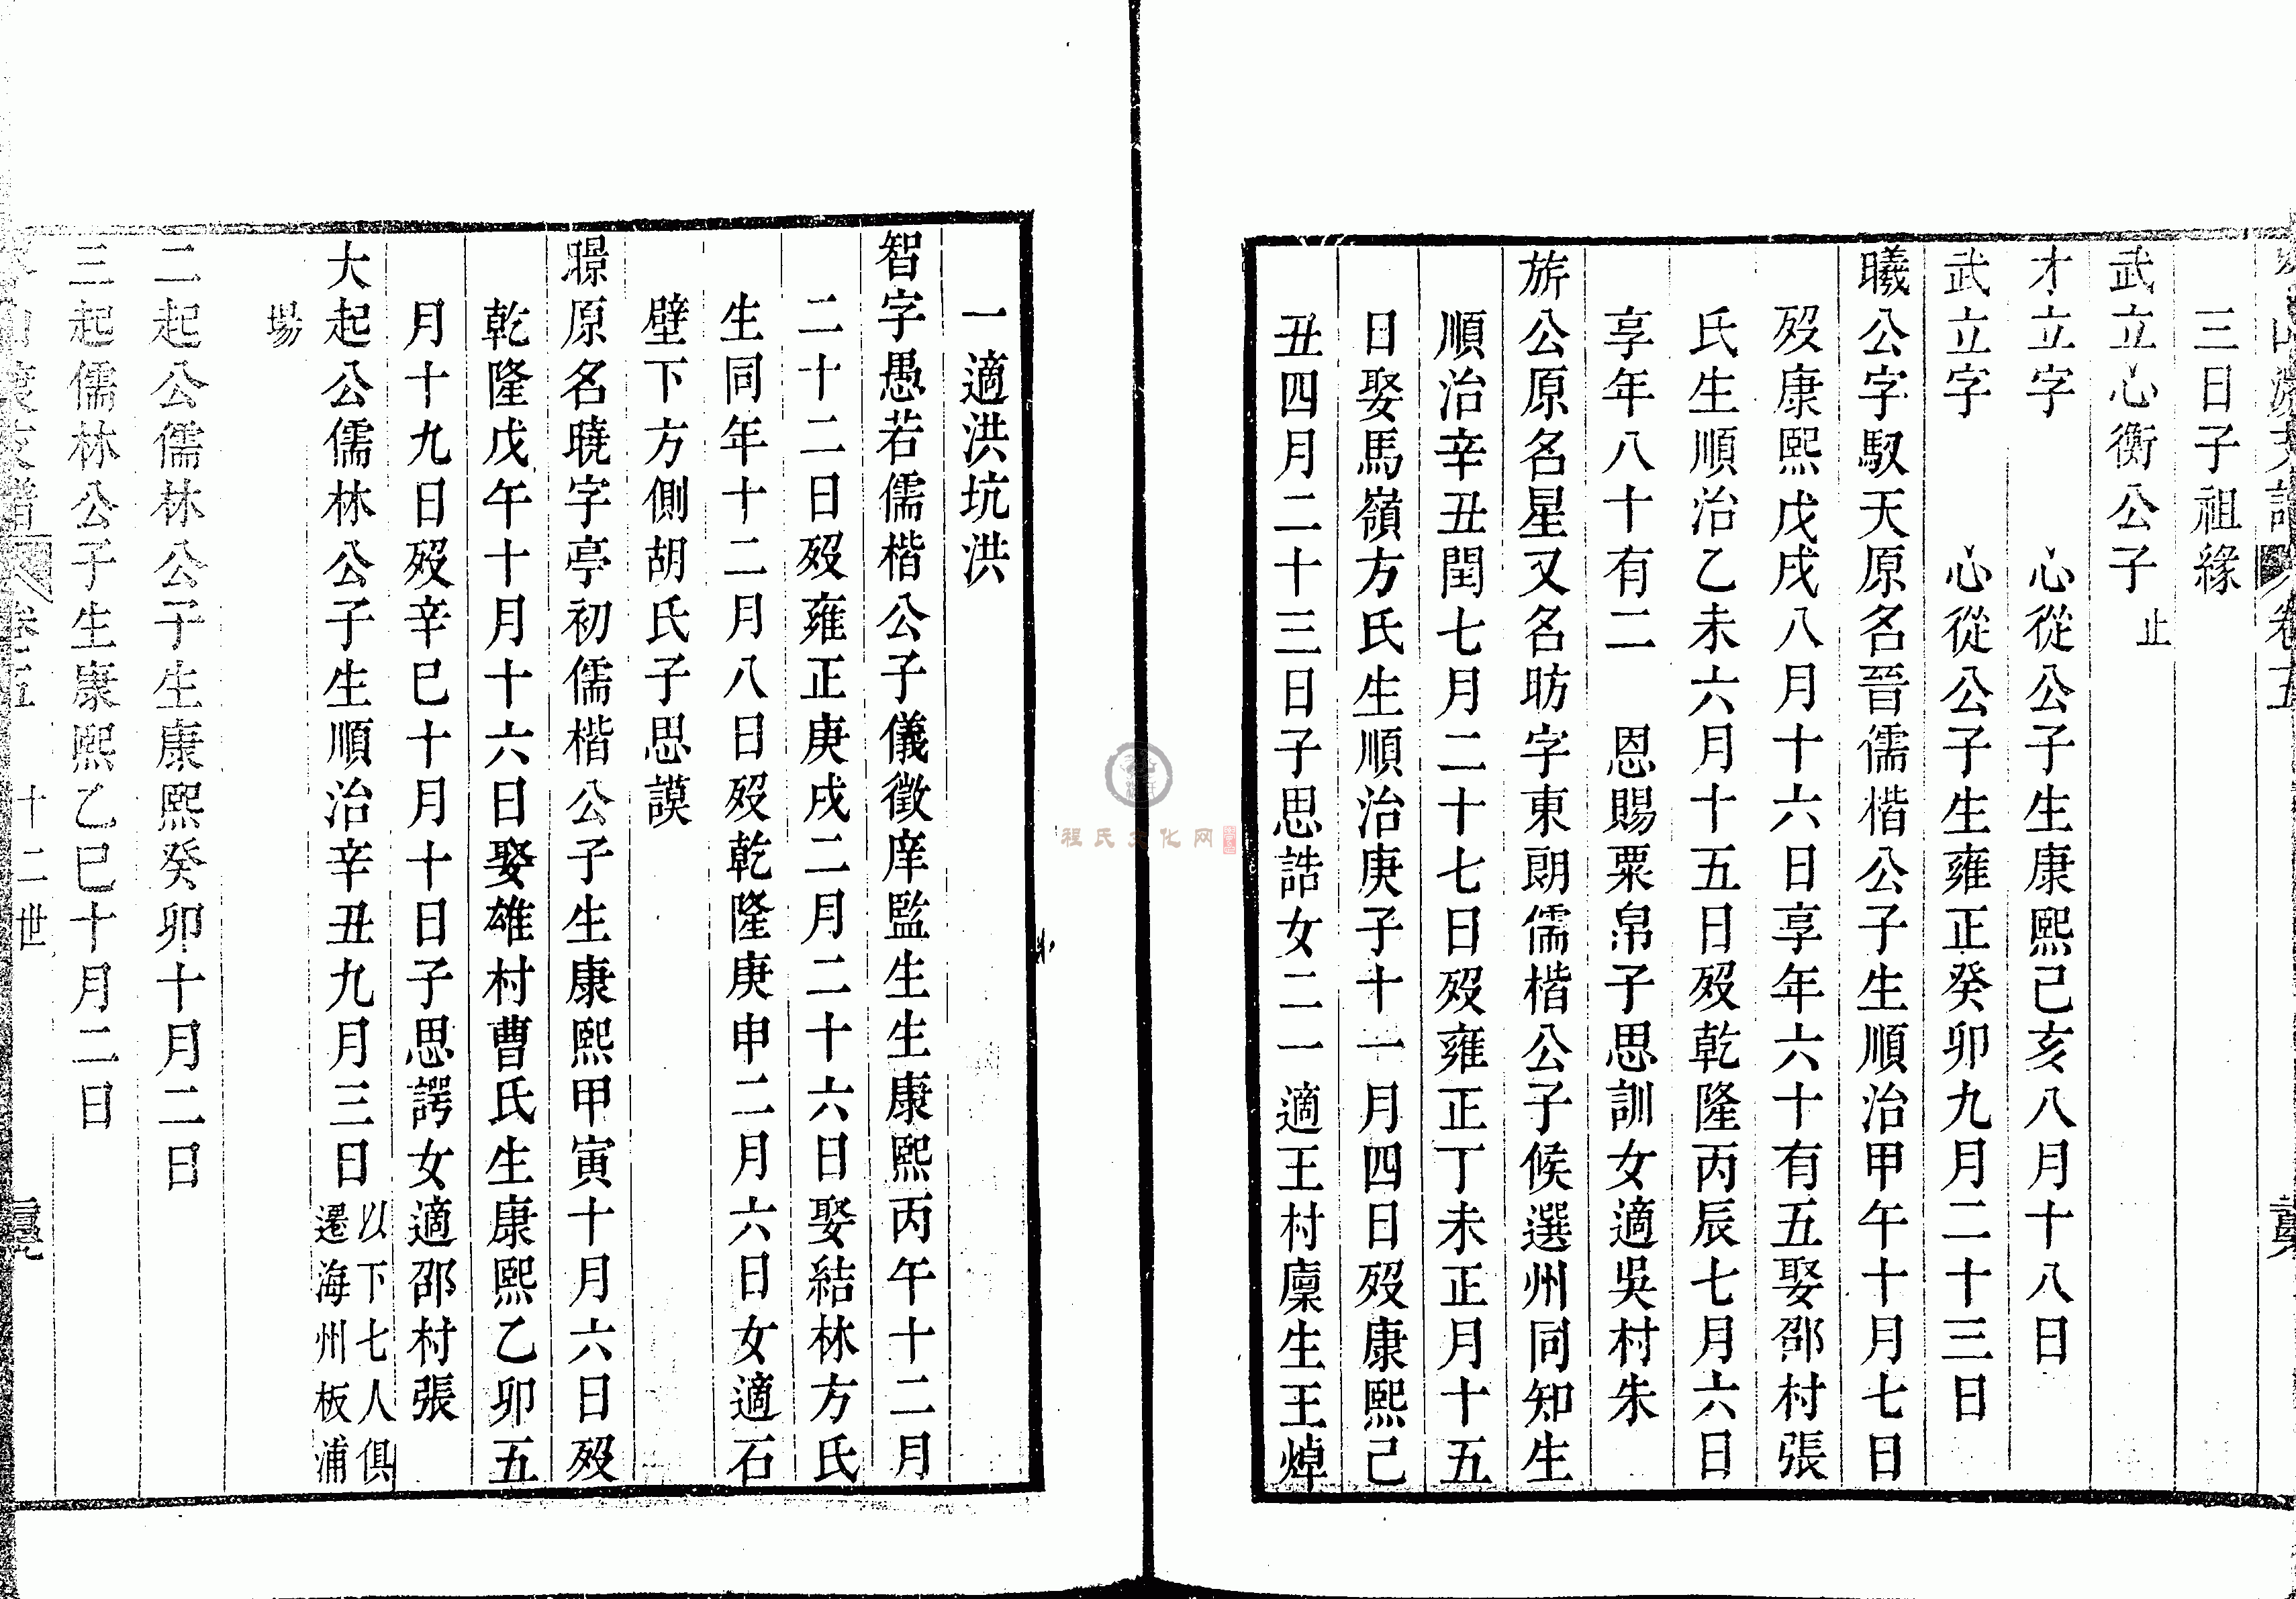 三日子祖緣
武立心衡公子 止
才立字 心從公子生康熙己亥八月十八日
武立字 心從公子生雍正癸卯九月二十三日
曦公字馭天原名晉儒楷公子生順治甲午十月七日
歿康熙戊戌八月十六日享年六十有五娶邵村張
氏生順治乙未六月十五日歿乾隆丙辰七月六日
享年八十有二 恩賜粟帛子思訓女適吳村朱
旂公原名星又名昉字東朗儒楷公子候選州同知生
順治辛丑閏七月二十七日歿雍正丁未正月十五
日娶馬嶺方氏生順治庚子十一月四日歿康熙己
丑四月二十三日子思誥女二一適王村廩生王焯
一適洪坑洪
智字愚若儒楷公子儀徵庠監生生康熙丙午十二月
二十二日歿雍正庚戌二月二十六日娶結林方氏
生同年十二月八日歿乾隆庚申二月六日女適石
壁下方側胡氏子思謨
暻原名曉字亭初儒楷公子生康熙甲寅十月六日歿
乾隆戊午十月十六日娶雄村曹氏生康熙乙卯五
月十九日歿辛巳十月十日子思諤女適邵村張
大起公儒林公子生順治辛丑九月三日 以下七人俱遷海州板浦
場
二起公儒林公子生康熙癸卯十月二日
三起儒林公子生康熙乙巳十月二日
支譜 卷五 十二世
程氏文化网